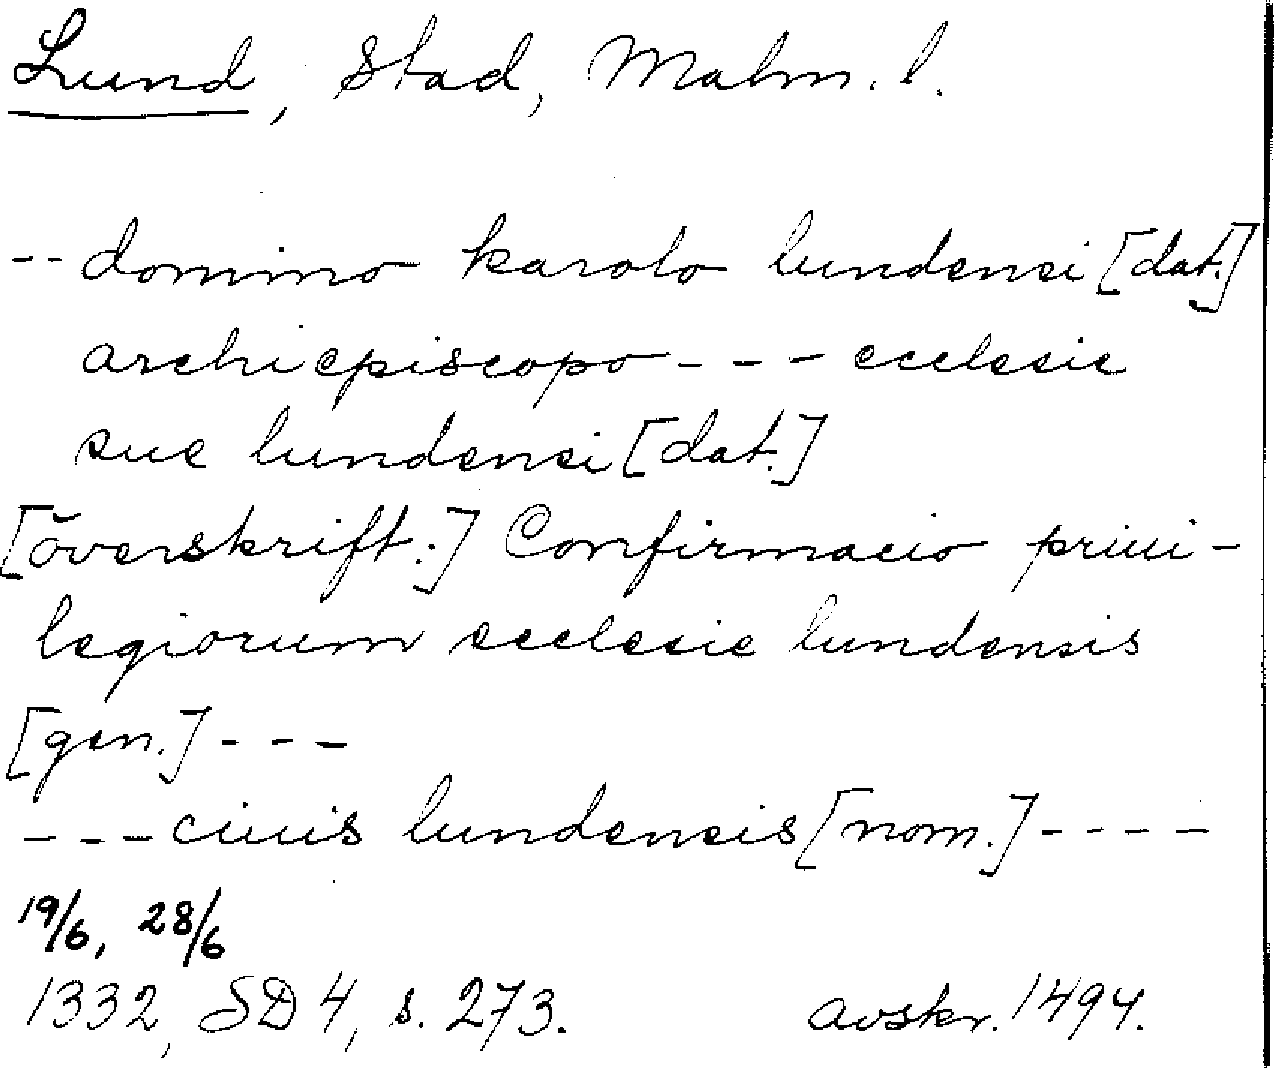 Lund, Stad, Malm. l.
-- domino karolo lundensi [dat.]
archiepiscopo --- ecclesie
sue lundensi [dat.]
[överskrift:] Confirmacio priui-
legiorum ecclesie lundensis
[gen.] ---
--- ciuis lundensis [nom.] ----
19/6, 28/6
1332, SD 4, s. 273. avskr. 1494.